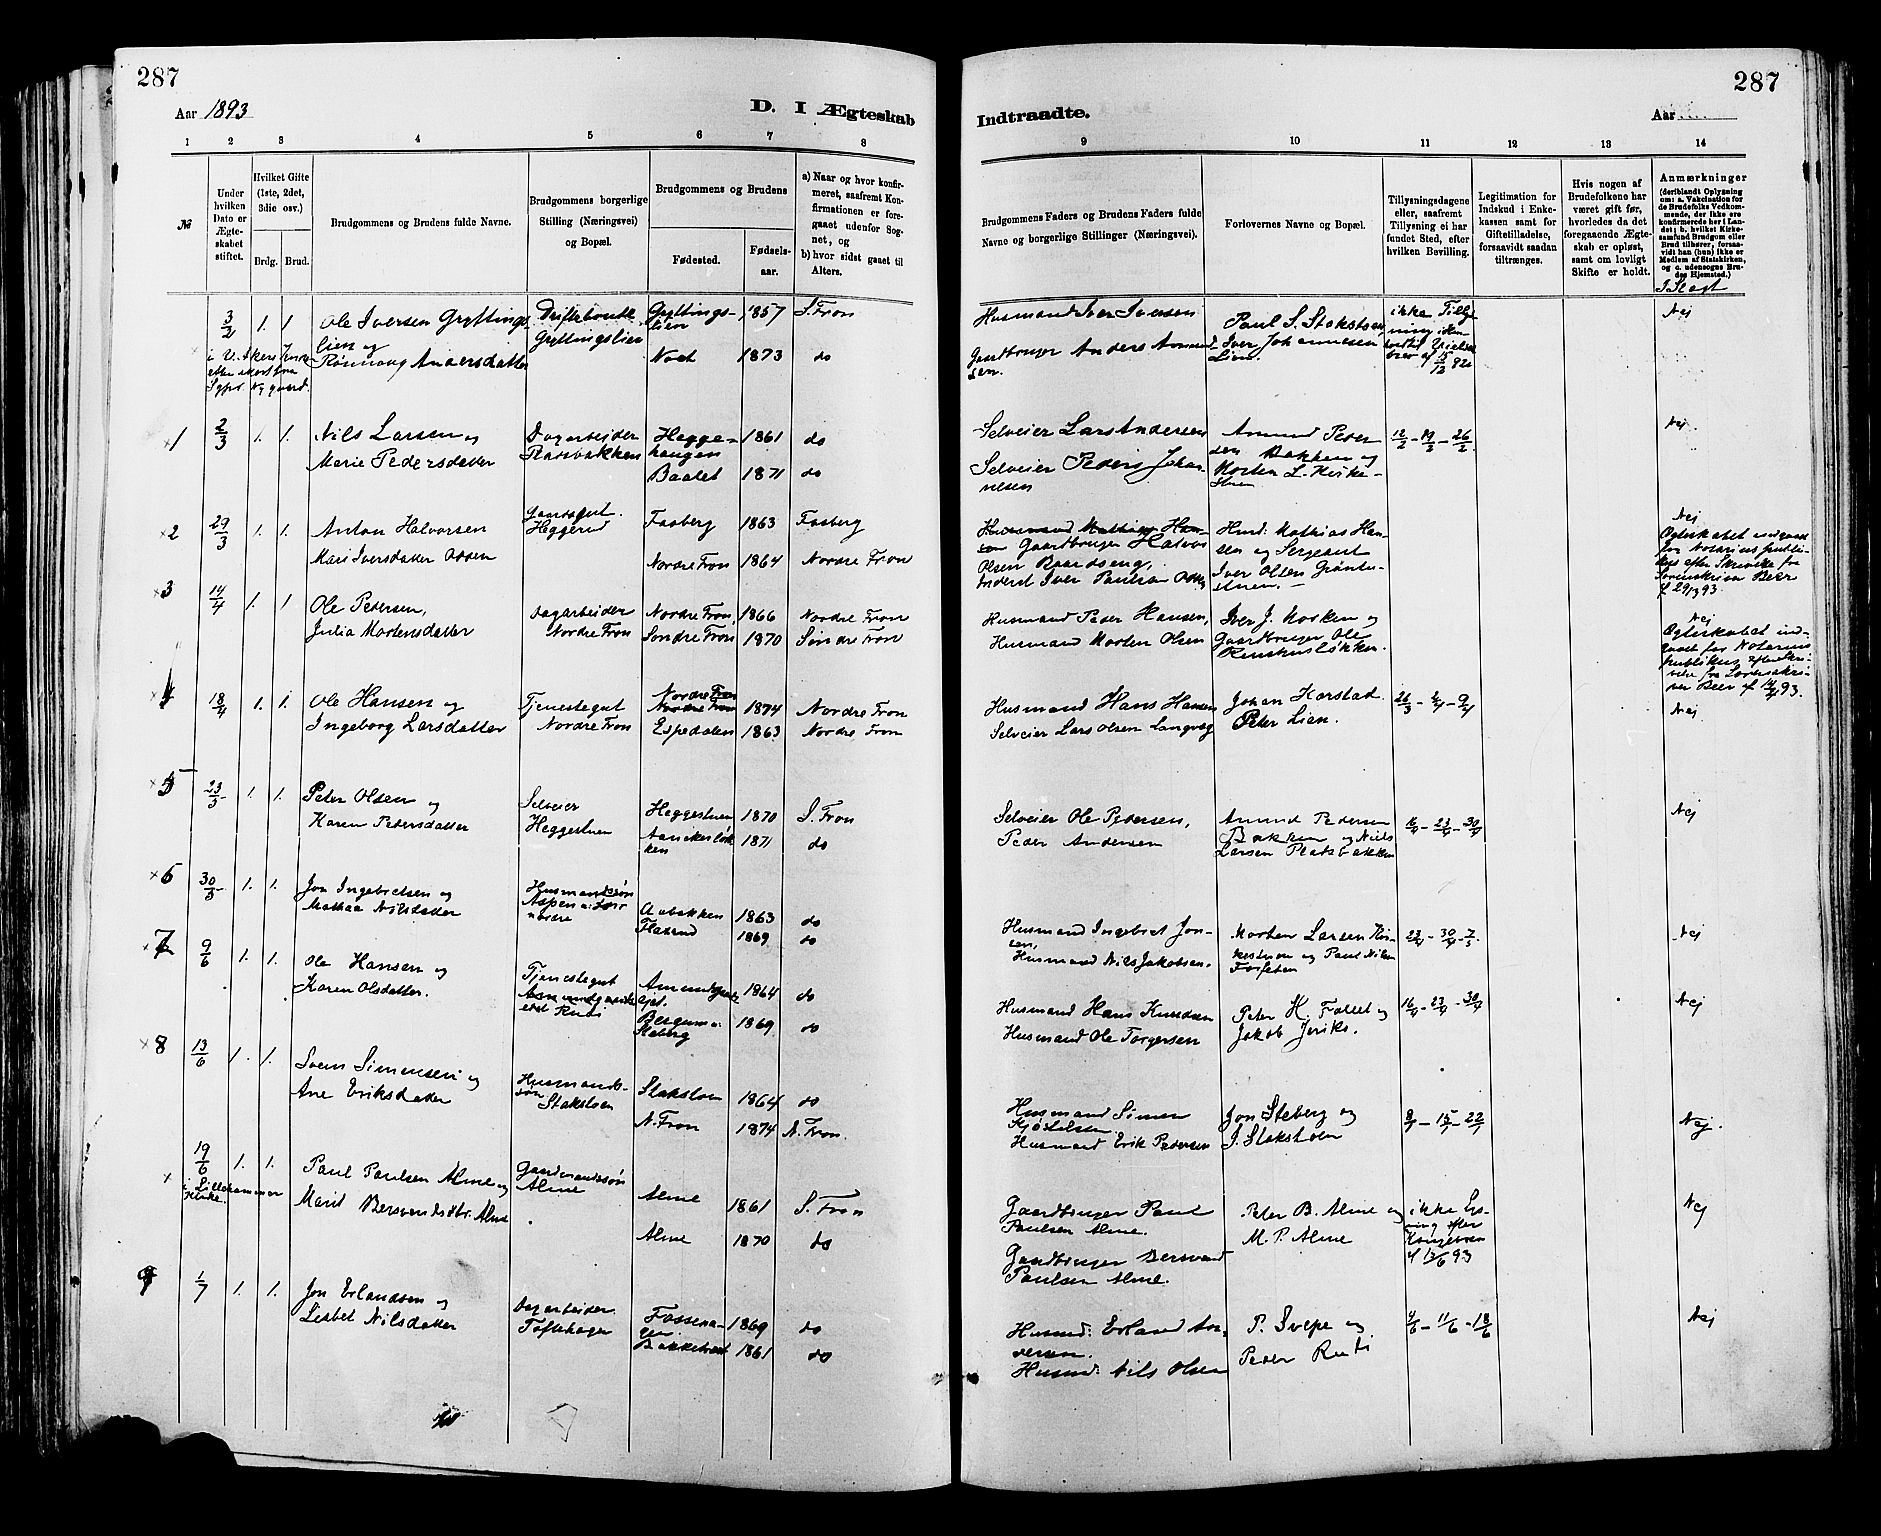 287
Aar 1893
D. I Ægteskab
1 2 3 4 5 6 7 8
№
Under hvilken Dato er Ægteskabet stiftet.
Hvilket Gifte (1ste, 2det, 3die osv.)
Brdg. Brud.
Brudgommens og Brudens fulde Navne.
Brudgommens borgerlige Stilling (Næringsvei) og Bopæl.
Brudgommens og Brudens
Fødested. Fødselsaar.
a) Naar og hvor konfirmeret, saafremt Konfirmationen er foregaaet udenfor Sognet, og
b) hvor sidst gaaet til Alters.
3/2 1. 1 Ole Iversen Gryttings- Gryttings- 1857 S. Fron
lien og Gryttingslien lien
Rønnaug Andersdatter 1873 do
1 2/3 1. 1. Nils Larsen og Dagarbeider Heggehaugen 1861 do
Marie Pedersdatter Pladsbakken Baalet 1871 do
2 29/3 1. 1. Anton Halvorsen Gaardsgut. Heggerud Faaberg 1863 Faaberg
Mari Iversdatter Odden Nordre Fron 1864 Nordre Fron
3 14/4 1. 1 Ole Pedersen, Dagarbeider Nordre Fron, 1866 Nordre Fron
Julia Mortensdatter Nordre Fron Søndre Fron 1870 Søndre Fron
4 18/4 1. 1. Ole Hansen og Tjenestegut Nordre Fron 1874 Nordre Fron
Ingeborg Larsdatter Nordre Fron Espedalen 1863 Nordre Fron
5 23/5 1. 1. Peter Olsen og Selveier Heggestuen 1870 S. Fron
Karen Pedersdatter Heggestuen 1871 do
6 30/5 1. 1. Jon Ingebretsen og Husmandssøn Aabakken 1863 do
Mathea Nilsdatter nordre 1869 do
7 9/6 1. 1. Ole Hansen og Tjenestegut 1864 do
Karen Olsdatter. 1869 do
8 13/6 1. 1. Svein Simensen og Husmandssøn Stakstoen 1864 do
Ane Eriksdatter Stakstoen N. Fron 1874 N. Fron.
19/6 1. 1. Paul Paulsen Alme og Gaardmandssøn Alme 1861 S. Fron
i Lillehammer Kirke. Marit Bersvendsdtr. Alme Alme Alme 1870 do
9 1/7 1. 1. Jon Erlandsen og Dagarbeider 1869 do
Lisbet Nilsdatter Toftehagen 1861 do
287
Indtraadte.
Aar
9 10 11 12 13 14
Brudgommens Faders og Brudens Faders fulde Navne og borgerlige Stillinger (Næringsvei).
Forlovernes Navne og Bopæl.
Tillysningsdagene eller, saafremt Tillysning ei har fundet Sted, efter hvilken Bevilling.
Legitimation for Indskud i Enkekassen samt for Giftetilladelse, forsaavidt saadan tiltrænges.
Hvis nogen af Brudefolkene har været gift før, hvorledes da det foregaaende Ægteskab er opløst, samt om lovligt Skifte er holdt.
Anmærkninger (deriblandt Oplysning om: a. Vakcination for de Brudefolks Vedkommende, der ikke ere konfirmerede her i Landet; b. hvilket Kirkesamfund Brudgom eller Brud tilhører, forsaavidt han (hun) ikke er Medlem af Statskirken, og c. udensogns Brudes Hjemsted.)
I Slægt
Husmand Iver Iversen Paul S. Stakstoen Nej
Iver Johannesen
Lien.
Selveier Lars Andersen Amund Peder- 12/2 - 19/2 - 26/2 Nej
Selveier Peder Johan- sen Bakken og
nelsen Morten L. Kirke-
stuen
Gaardbruger Halvor Husmd. Mathias Han- Nej
Olsen Baardseng, sen og Sergeant
Inderst Iver Paulsen Iver Olsen
Ægteskabet indgaaet for Notarius publikus efter Skrivelse fra Sorenskriver Beer af 29/3 93.
Husmand Peder Hansen, Iver J. Morken og Nej
Husmand Morten Olsen Gaardbruger Ole
Ægteskabet indgaaet for Notarius publikus efter Skrivelse fra Sorenskriver Beer af 14/4 93.
Husmand Hans Hansen Johan Harstad 26/3 - 2/4 - 9/4 Nej
Selveier Lars Olsen Langvag Peter Lien.
Selveier Ole Pedersen, Amund Pedersen 16/4 - 23/4 - 30/4 Nej
Peder Andersen Bakken og Niels
Larsen Pladsbakken
Husmand Ingebret Jon- Morten Larsen Kir- 23/4 - 30/4 - 7/5 Nej
sen, kestuen og Paul Nilsen
Husmand Nils Jakobsen.
Husmand Hans Knudsen Peter H. og 16/4 - 23/4 - 30/4 Nej
Husmand Ole Torgersen Jakob
Husmand Simen Jon Steberg og 15 - 22 Nej.
Husmand Erik Pedersen J. Stakstoen
Gaardbruger Paul Peter B. Alme og ikke Lys- Nej
Paulsen Alme. M. P. Alme ning efter
Gaardbruger Bersvend Kongebrev
Paulsen Alme. af 13/6 93
Husmd: Erland An- P. Svepe og 4/6 - 11/6 - 18/6 Nej
dersen. Peder
Husmd: Nils Olsen